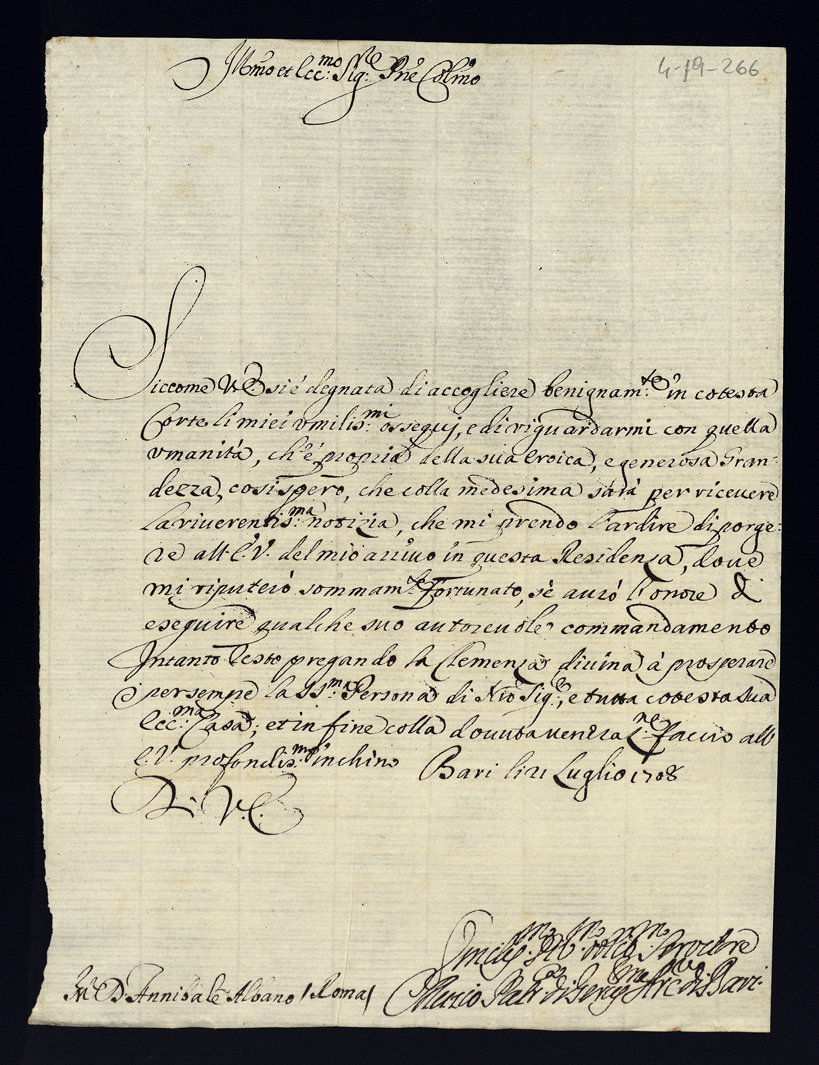 4-19-266
Ill.mo et Ecc.mo Sig.re Pne Colmo
Siccome V.E. si è degnata di accogliere benignam.te in cotesta
Corte li miei vmilis.mi ossequj, e di riguardarmi con quella
vmanità, ch'è propria della sua eroica, e generosa Gran-
dezza, così spero, che colla medesima sarà per ricevere
la riverentis.ma notizia, che mi prendo l'ardire di porge-
re all'E.V. del mio arrivo in questa Residenza, dove
mi riputerò sommam.te fortunato, se avrò l'onore di
eseguire qualche suo autorevole commandamento
Intanto resto pregando la Clemenza divina à prosperare
per sempre la SS.ma Persona di Nro Sig.e, e tutta cotesta sua
Ecc.ma Casa; et in fine colla dovuta venera.ne faccio all'
E.V. profondis.mo inchino Bari li 21 Luglio 1708
Di V.E.
Servitore
Muzio Arc. di Bari
D. Annibale Albano /Roma/